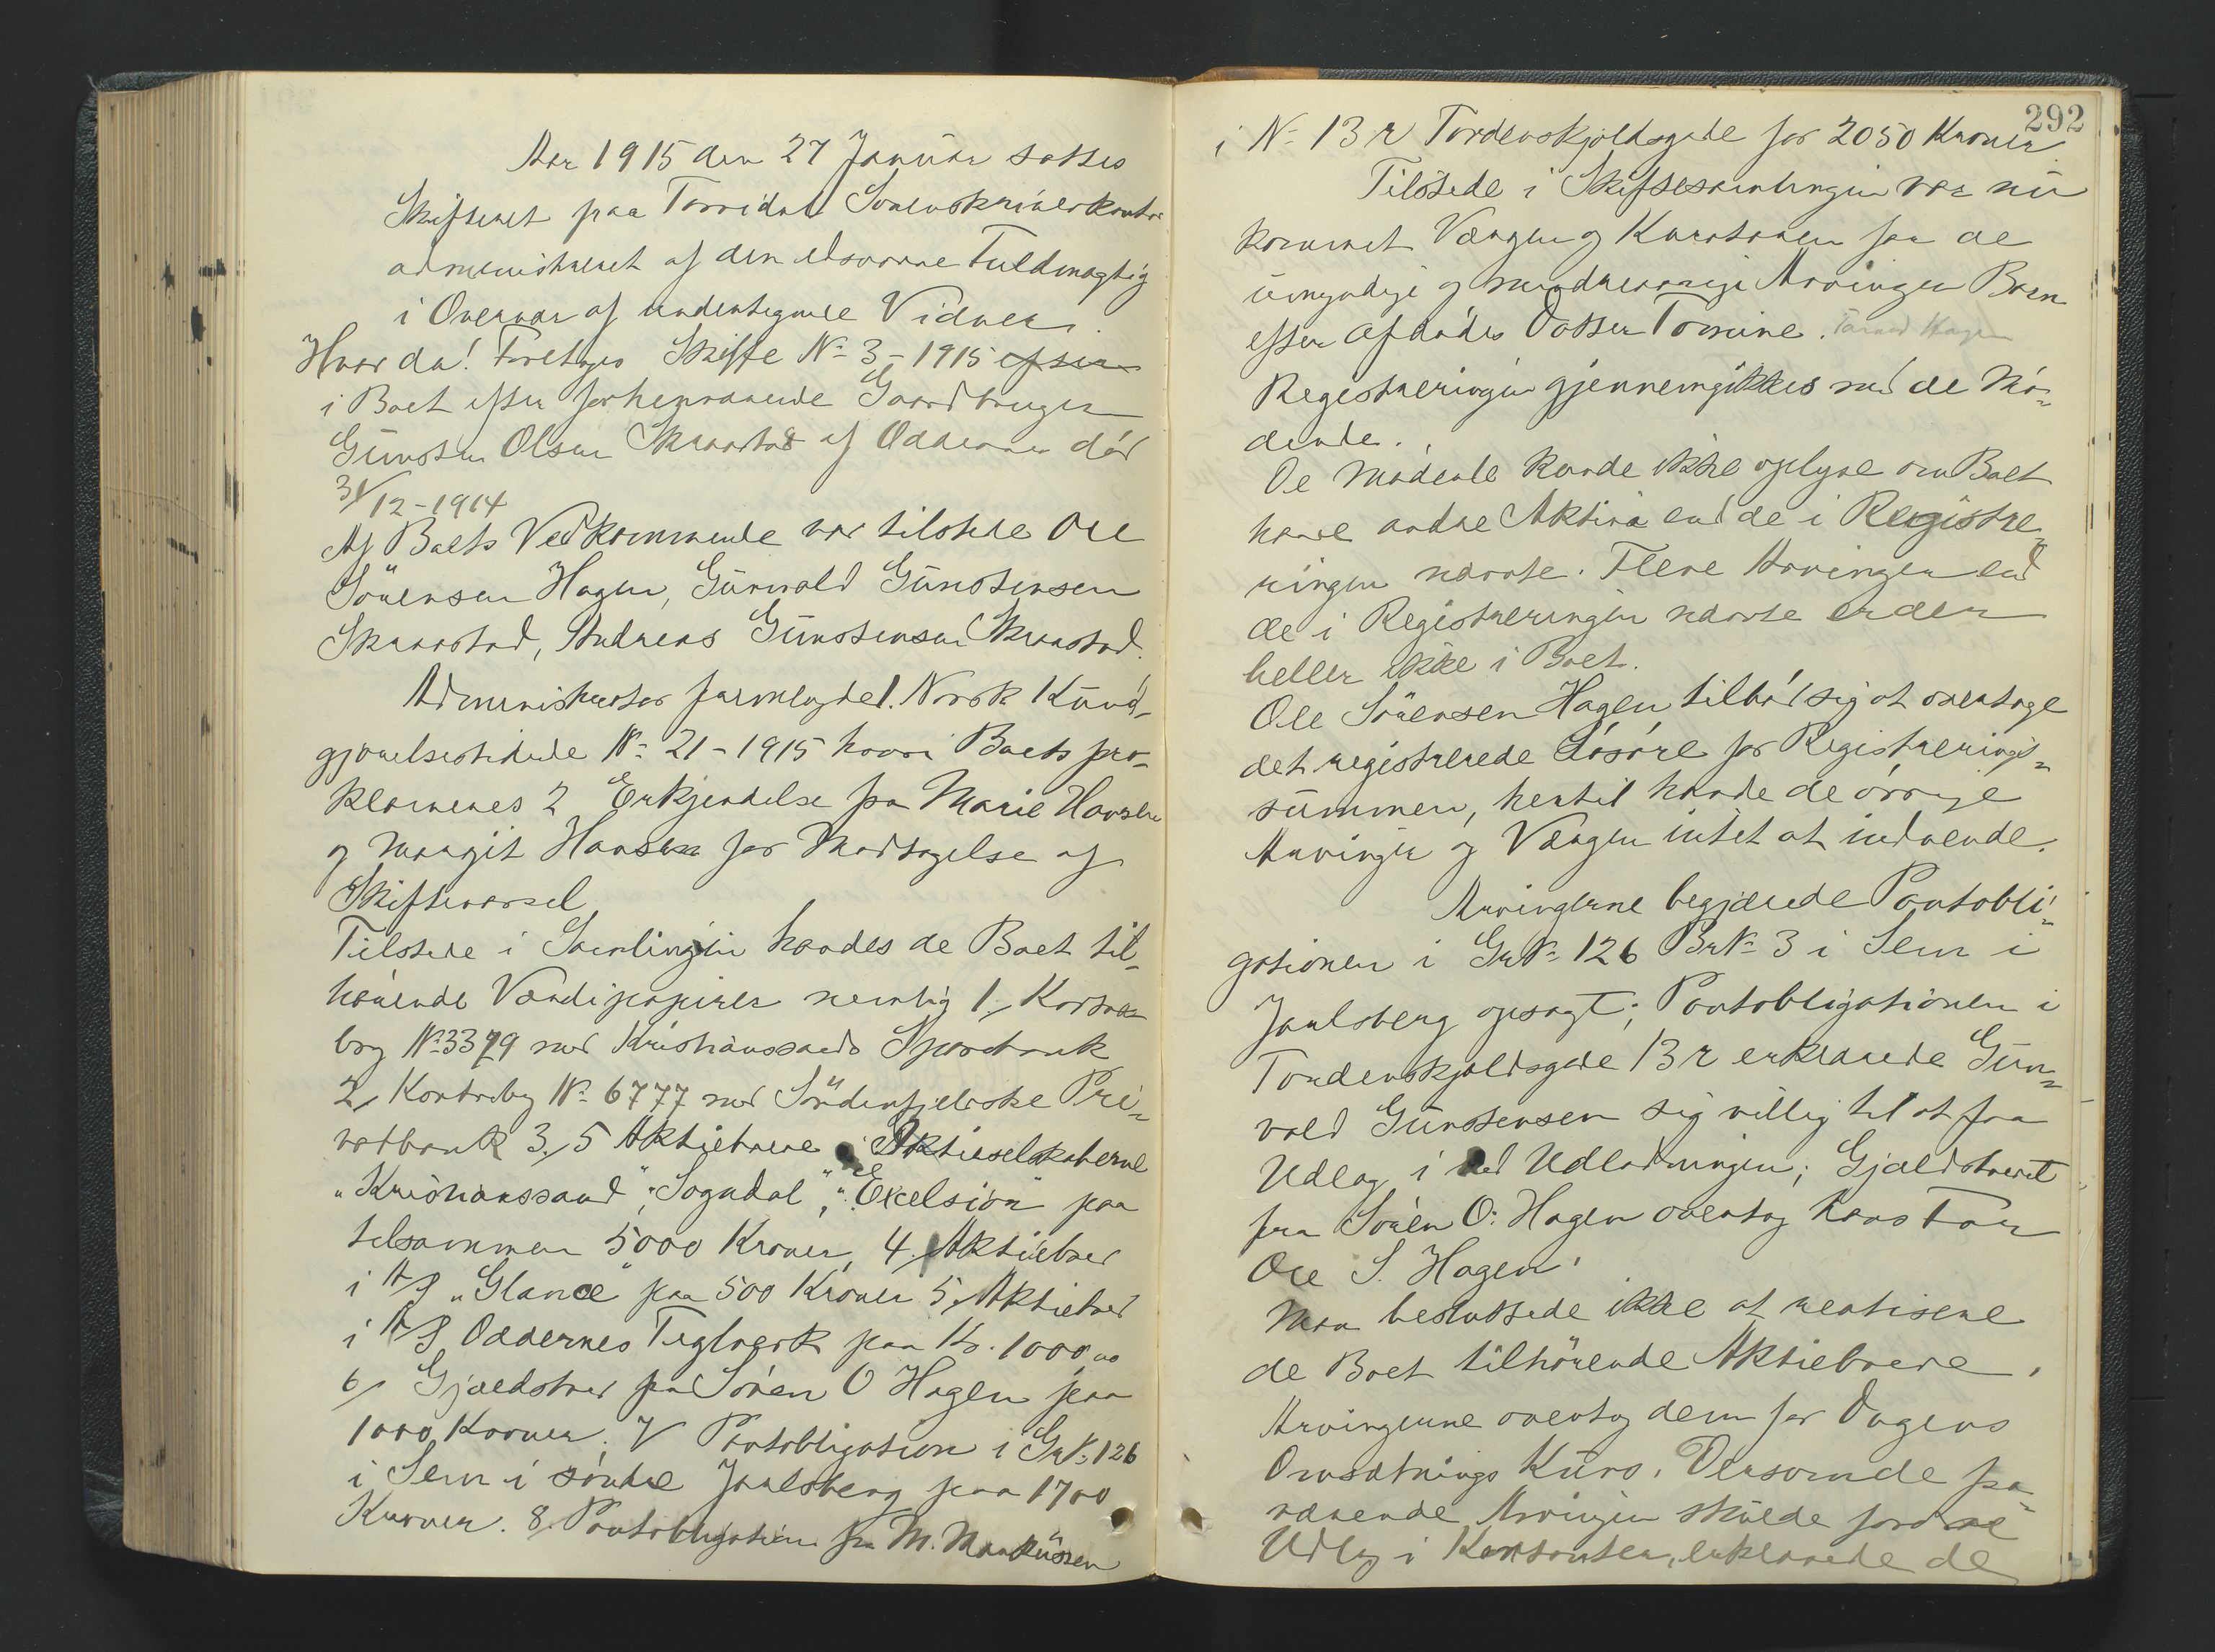 Aar 1915 den 27 Januar sattes
Skifteret paa Torridal Sorenskriverkontor
administreret af den edsvorne Fuldmægtig
i Overvær af undertegnede Vidner.
Hvorda! Foretoges Skifte No 3-1915 efter
i Boet efter forhenværende Gaardbruger
Gunsten Olsen Skraastad af Oddernes død
31/12-1914
Af Boets Vedkommende var tilstede Ole
Sörensen Hagen, Gunvald Gunstensen
Skraastad, Andreas Gunstensen Skraastad.
Administrator fremlagde 1. Norsk Kund-
gjørelsestidende No 21-1915 hvori Boets pro-
klamenes 2 Erkjendelse fra Marie Hansen
og Margit Hansen for Modtagelse af
Skiftevarsel
Tilstede i Samlingen havdes de Boet til-
hørende Værdipapirer nemlig 1, Kontra
bog No 3379 med Kristianssands Sparebank
2, Kontrabog No 6777 med Söndenfjeldske Pri-
vatbank 3, 5 Aktiebreve i Aktieselskaberne
"Kristianssand", "Sogndal", "Excelsior" paa
tilsammen 5000 Kroner, 4, Aktiebrev
i A/S "Glance" paa 500 Kroner 5, Aktiebrev
i A/S Oddernes Teglværk paa Kr. 1000,00
6, Gjældsbrev fra Sören O Hagen paa
1000 Kroner. 7, Pantobligation i GrNo 126
i Sem i søndre Jarlsberg paa 1700
Kroner. 8, Pantobligation fra M. Markussen
292
i No 13 r Tordenskjoldsgade for 2050 Kroner.
Tilstede i Skiftesamlingen var nu
kommet Værgen og Kuratoren for de
umyndige og mindreaarige Arvinger Børn
efter afdøde Datter Tomine. Hagen
Registreringen gjennemgikkes med de Mø-
dende.
De Mødende kunde ikke oplyse om Boet
havde andre Aktiva end de i Registre-
ringen nævnte. Flere Arvinger end
de i Registreringen nævnte er der
heller ikke i Boet.
Ole Sörensen Hagen tilbød sig at overtage
det registrerede Løsøre for Registrerings-
summen, hertil havde de øvrige
Arvinger og Værgen intet at indvende.
Arvingerne begjærede Pantobli-
gationen i GrNo 126 BrNo 3 i Sem i
Jarlsberg opsagt; Pantobligationen i
Tordenskjoldsgade 13 r erklærede Gun-
vald Gunstensen sig villig til at faa
Udlæg i ved Udlodningen; Gjældsbrevet
fra Sören O. Hagen overtog hans Far
Ole S. Hagen.
Man besluttede ikke at realisere
de Boet tilhörende Aktiebreve.
Arvingerne overtog dem for Dagens
Omsætnings Kurs. Dersom de fra-
værende Arvinger skulde fordre
Udlæg i Kontanter, erklærede de